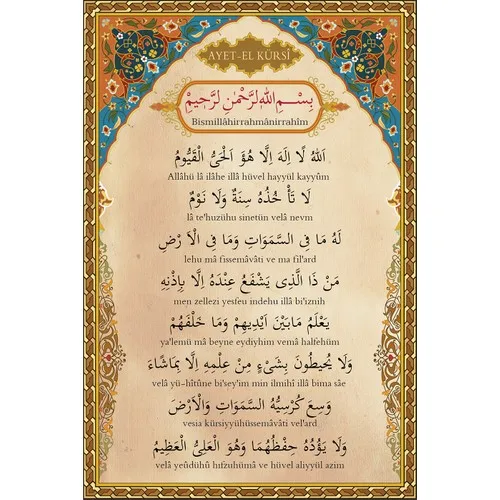 AYET-EL KÜRSÎ
بِسْــمِ اللهِ لرَّحْمٰنِ لرَّحِيمِ
Bismillâhirrahmânirrahîm
اَللهُ لَٓا اِلٰهَ اِلَّا هُوَ اَلْحَىُّ الْقَيُّومُ
Allâhü lâ ilâhe illâ hüvel hayyül kayyûm
لَا تَأْ خُذُهُ سِنَةٌ وَلَا نَوْمٌ
lâ te'huzühu sinetün velâ nevm
لَهُ مَا فِى السَّمَوَاتِ وَمَا فِى الْاَ رْضِ
lehu mâ fissemâvâti ve ma fil'ard
مَنْ ذَا الَّذِى يَشْفَعُ عِنْدَهُ اِلَّا بِاِذْنِهِ
men zellezi yesfeu indehu illâ bi'iznih
يَعْلَمُ مَابَيْنَ اَيْدِيهِمْ وَمَا خَلْفَهُمْ
ya'lemü mâ beyne eydiyhim vemâ halfehüm
وَلَا يُحِيطُونَ بِشَىْءٍ مِنْ عِلْمِهِ اِلَّا بِمَاشَٓاءَ
velâ yü-hîtûne bi'sey'im min ilmihî illâ bima sâe
وَسِعَ كُرْسِيُّهُ السَّمَوَاتِ وَالْاَرْضَ
vesia kürsiyyühüssemâvâti vel'ard
وَلَا يَؤُدُهُ حِفْظُهُمَا وَهُوَ الْعَلِىُّ الْعَظِيمُ
velâ yeûdühû hıfzuhümâ ve hüvel aliyyül azim